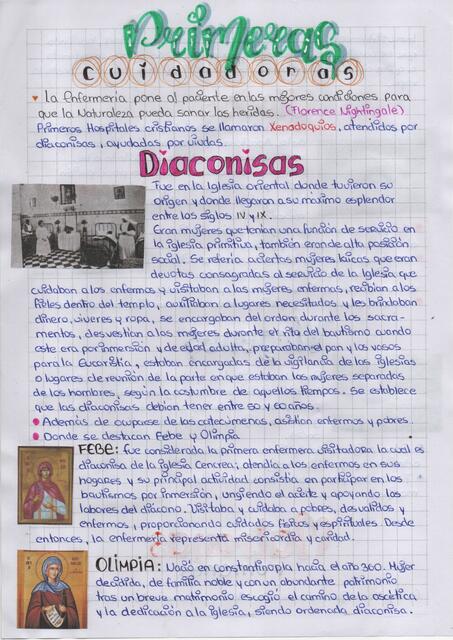 Primeras
cuidadoras
♥ La Enfermería pone al paciente en las mejores condiciones para
que la Naturaleza pueda sanar las heridas. (Florence Nightingale)
Primeros Hospitales cristianos se llamaron Xenodoquios, atendidos por
diaconisas, ayudadas por viudas.
Diaconisas
Fue en la Iglesia oriental donde tuvieron su
origen y donde llegaron a su máximo esplendor
entre los siglos IV y IX.
Eran mujeres que tenían una función de servicio en
la iglesia primitiva, también eran de alta posición
social. Se refería a ciertas mujeres laicas que eran
devotas consagradas al servicio de la Iglesia que
cuidaban a los enfermos y visitaban a las mujeres enfermas, recibían a los
fieles dentro del templo, auxiliaban a lugares necesitados y les brindaban
dinero, víveres y ropa, se encargaban del orden durante los sacra-
mentos, desvestían a las mujeres durante el rito del bautismo cuando
este era por inmersión y de edad adulta, preparaban el pan y los vasos
para la Eucaristía, estaban encargadas de la vigilancia de las iglesias
o lugares de reunión de la parte en que estaban las mujeres separadas
de los hombres, según la costumbre de aquellos tiempos. Se establece
que las diaconisas debían tener entre 50 y 60 años.
• Además de ocuparse de las catecúmenas, asistían enfermos y pobres.
• Donde se destacan Febe y Olimpia
FEBE: fue considerada la primera enfermera visitadora la cual es
diaconisa de la iglesia Cencrea; atendía a los enfermos en sus
hogares y su principal actividad consistía en participar en los
bautismos por inmersión, ungiendo el aceite y apoyando los
labores del diácono. Visitaba y cuidaba a pobres, desvalidos y
enfermos, proporcionando cuidados físicos y espirituales. Desde
entonces, la enfermería representa misericordia y caridad.
OLIMPIA: Nació en constantinopla hacia el año 360. Mujer
decidida, de familia noble y con un abundante patrimonio
tras un breve matrimonio escogió el camino de la ascética
y la dedicación a la iglesia, siendo ordenada diaconisa.